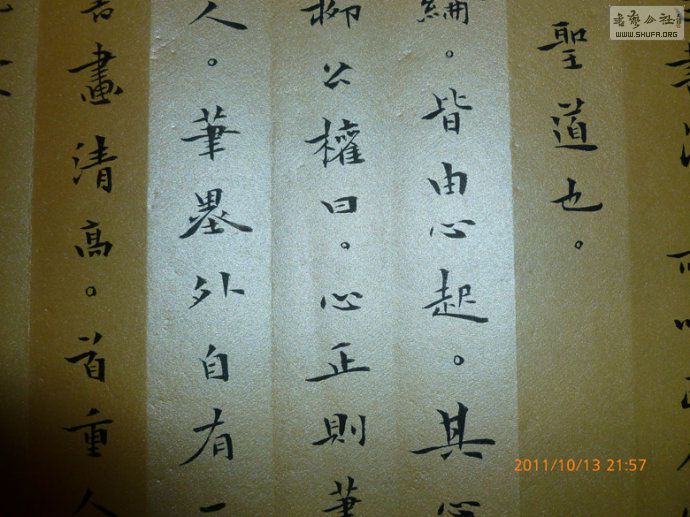 聖道也。
綸。皆由心起。其心
柳公權曰。心正則筆
人。筆墨外自有一
書畫清高。首重人
WWW.SHUFA.ORG
2011/10/13 21:57